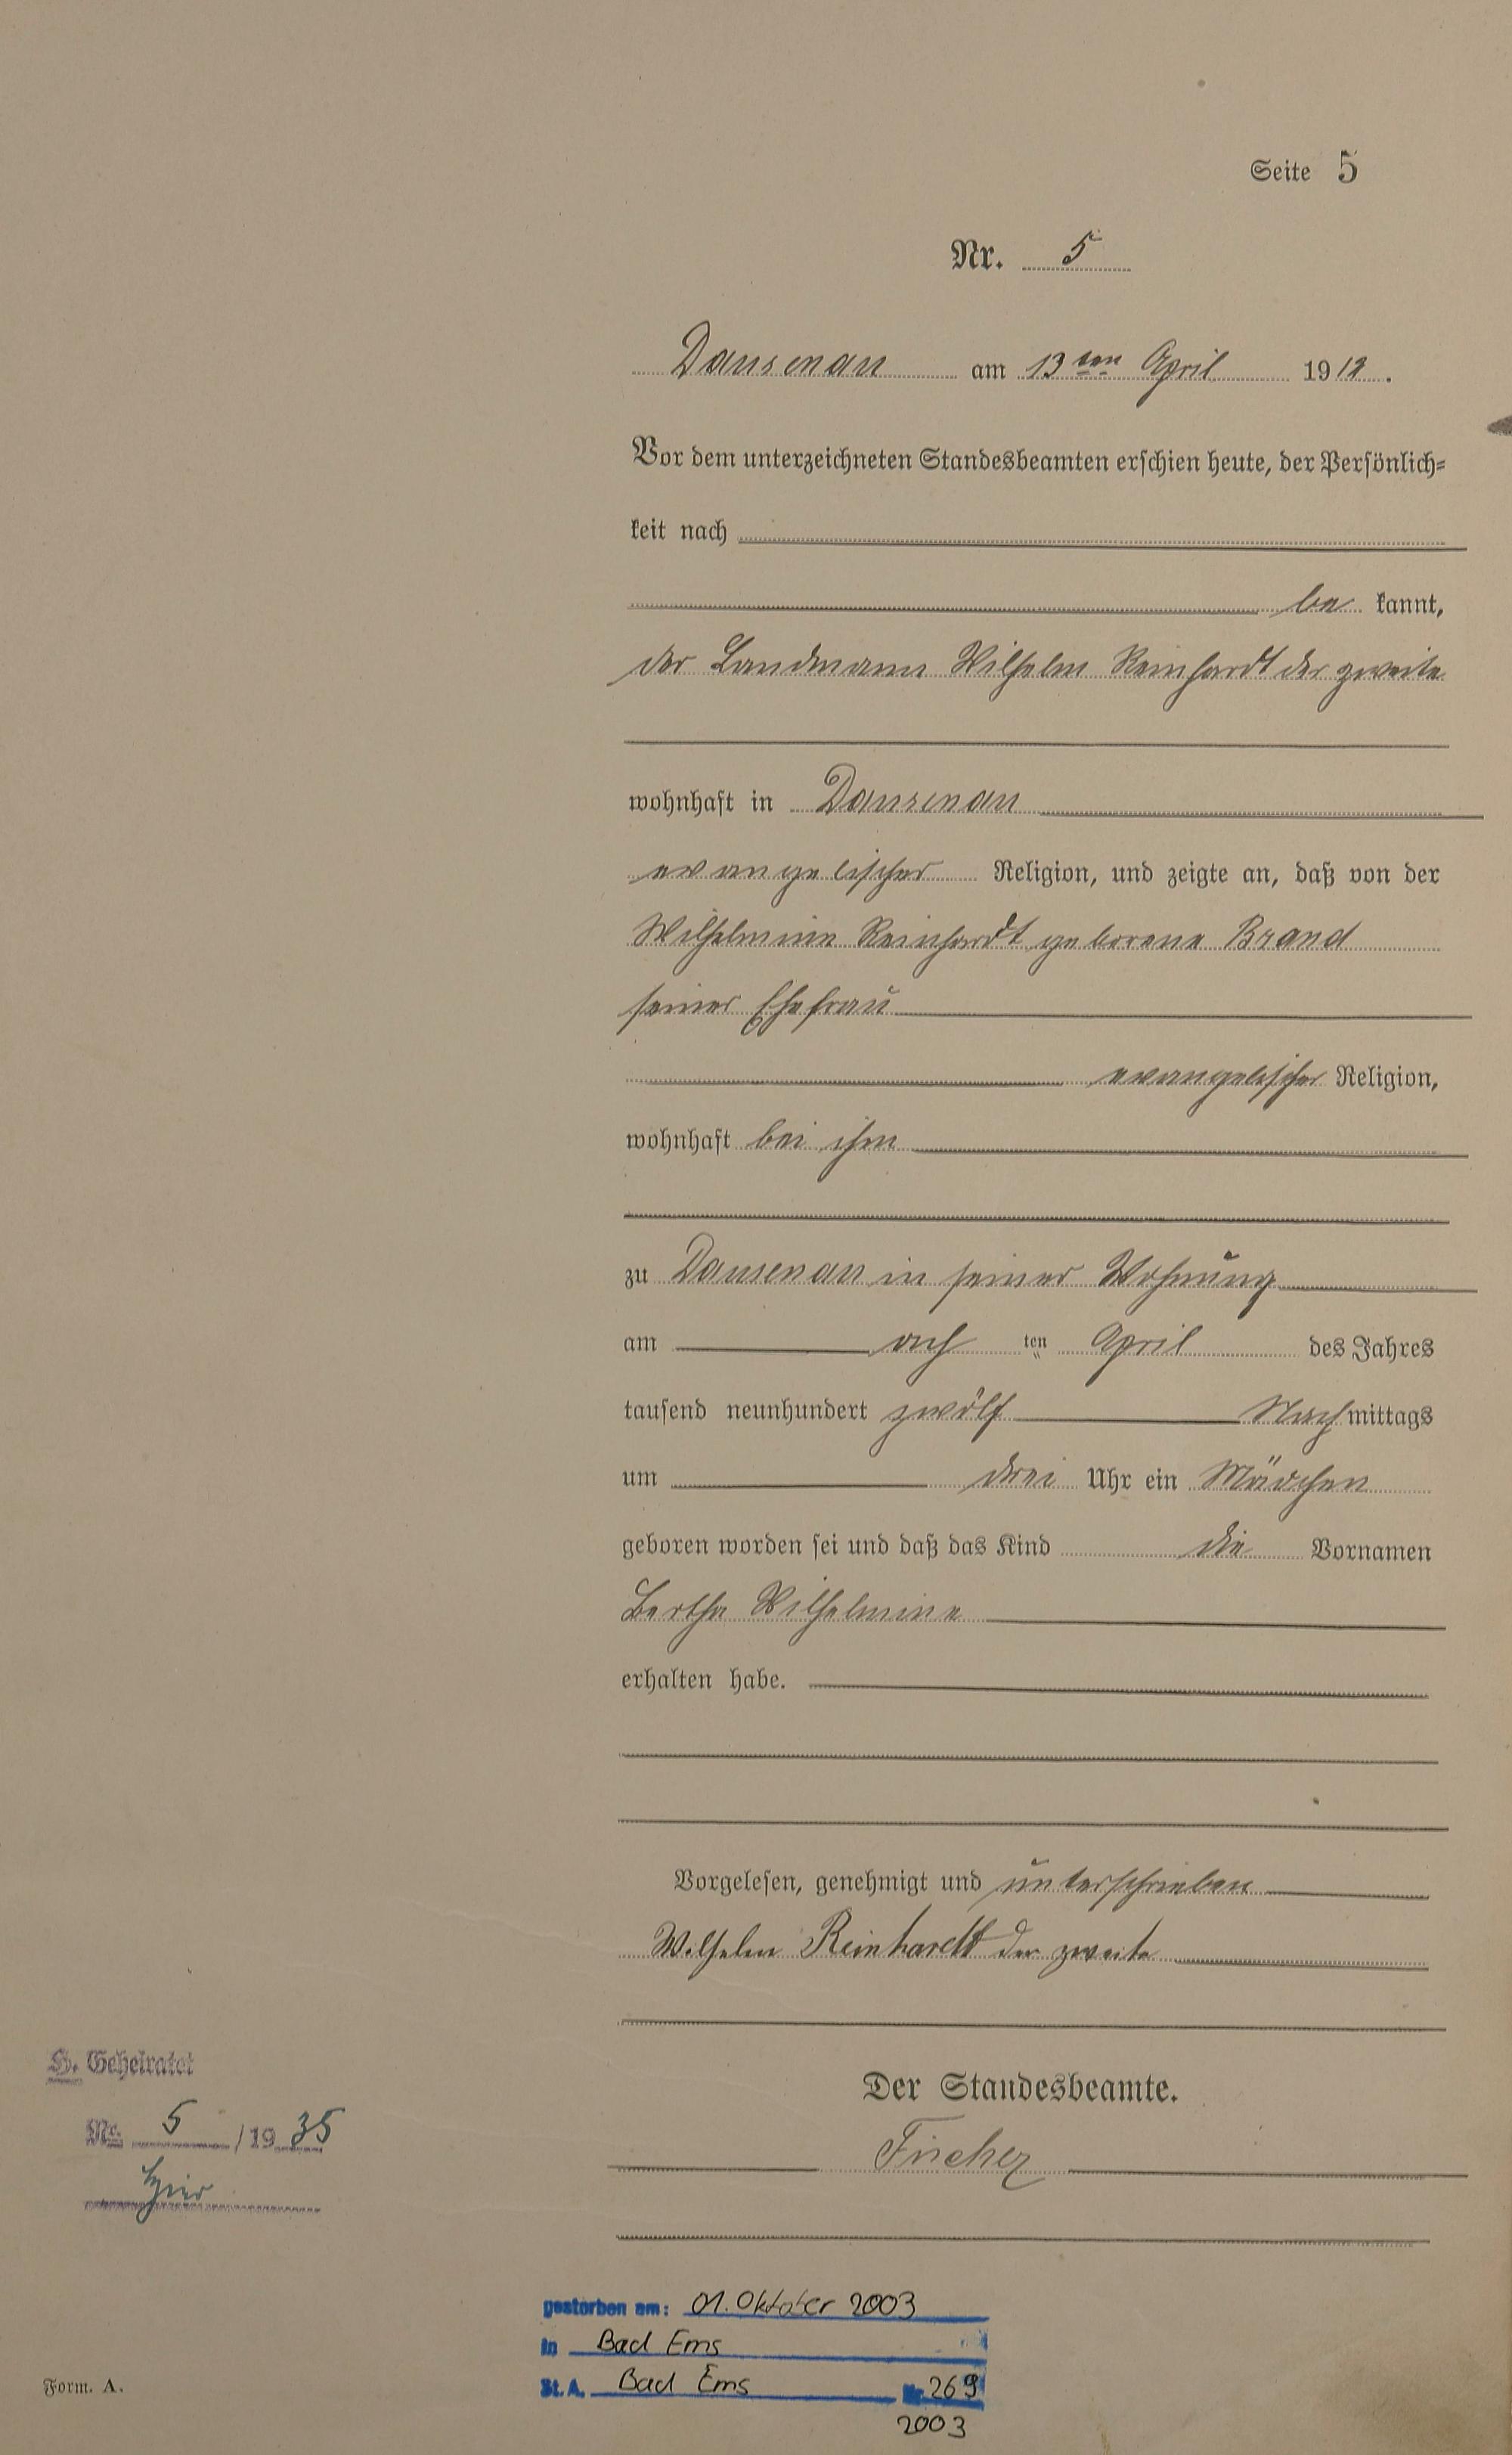 Seite 5
Nr. 5
Dausenau am 13ten April 1912.
Vor dem unterzeichneten Standesbeamten erschien heute, der Persönlich=
keit nach
be kannt,
der Landmann Wilhelm Reinhardt der zweite
wohnhaft in Dausenau
evangelischer Religion, und zeigte an, daß von der
Wilhelmine Reinhardt geborene Brand
seiner Ehefrau
evangelischer Religion,
wohnhaft bei ihm
zu Dausenau in seiner Wohnung
am ach ten April des Jahres
tausend neunhundert zwölf Nach mittags
um drei Uhr ein Mädchen
geboren worden sei und daß das Kind die Vornamen
Bertha Wilhelmine
erhalten habe.
Vorgelesen, genehmigt und unterschrieben
Wilhelm Reinhardt der zweite
Der Standesbeamte.
Fischer
H. Geheiratet
Nr. 5 /1935
hier
gestorben am: 01. Oktober 2003
in Bad Ems
St.A. Bad Ems Nr. 269
2003
Form. A.